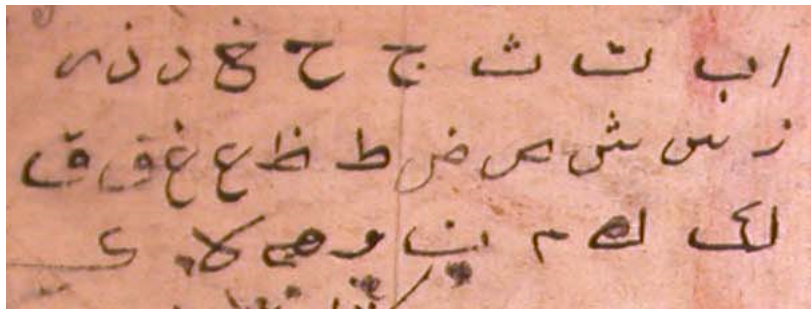 ا ب ت ث ج ح خ د ذ ر
ز س ش ص ض ط ظ ع غ ف ق
ك ل م ن و ه لا ي